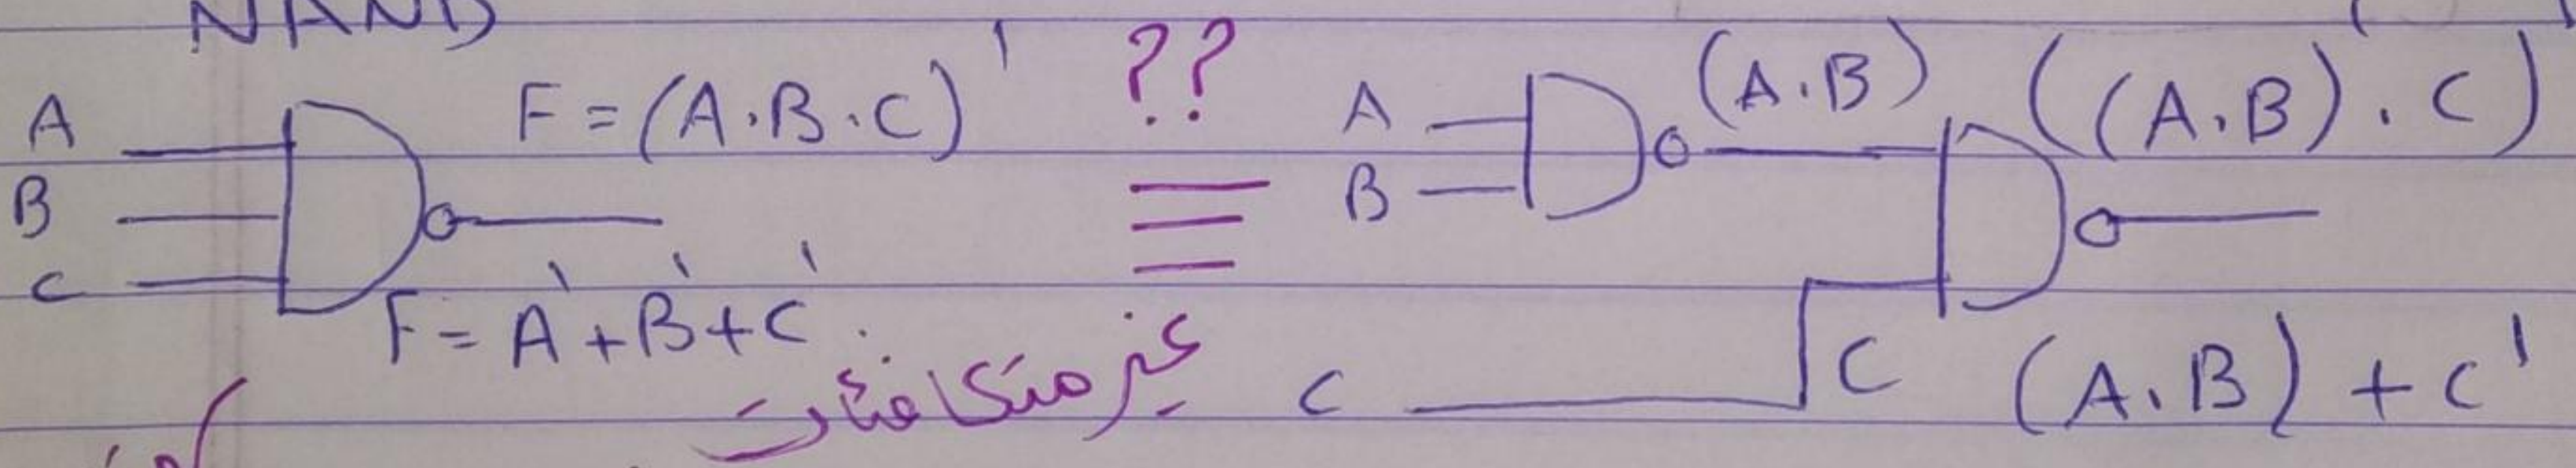 NAND
A
B
C
F = (A.B.C)'
F = A' + B' + C'
??
≡
غير متكافئات
A
B
(A.B)
((A.B).C)
C
C
(A.B) + C'